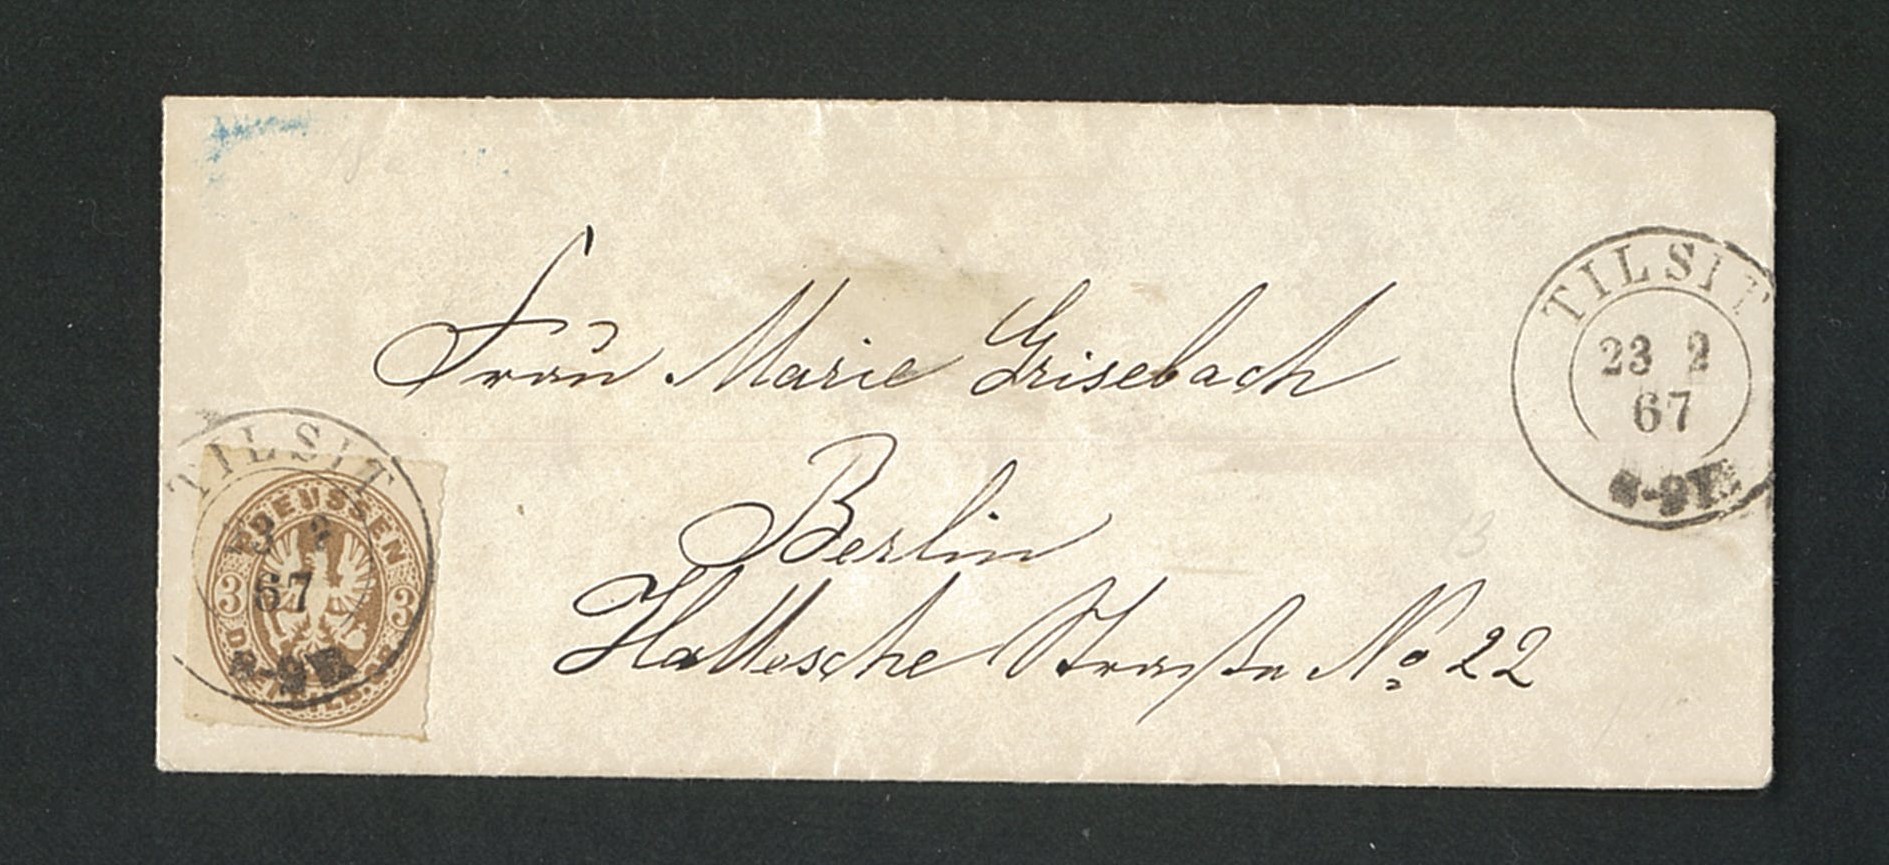 Frau Marie Grisebach
Berlin
Hallesche Straße No 22
TILSIT
23 2
67
TILSIT
67
PREUSSEN
3 3